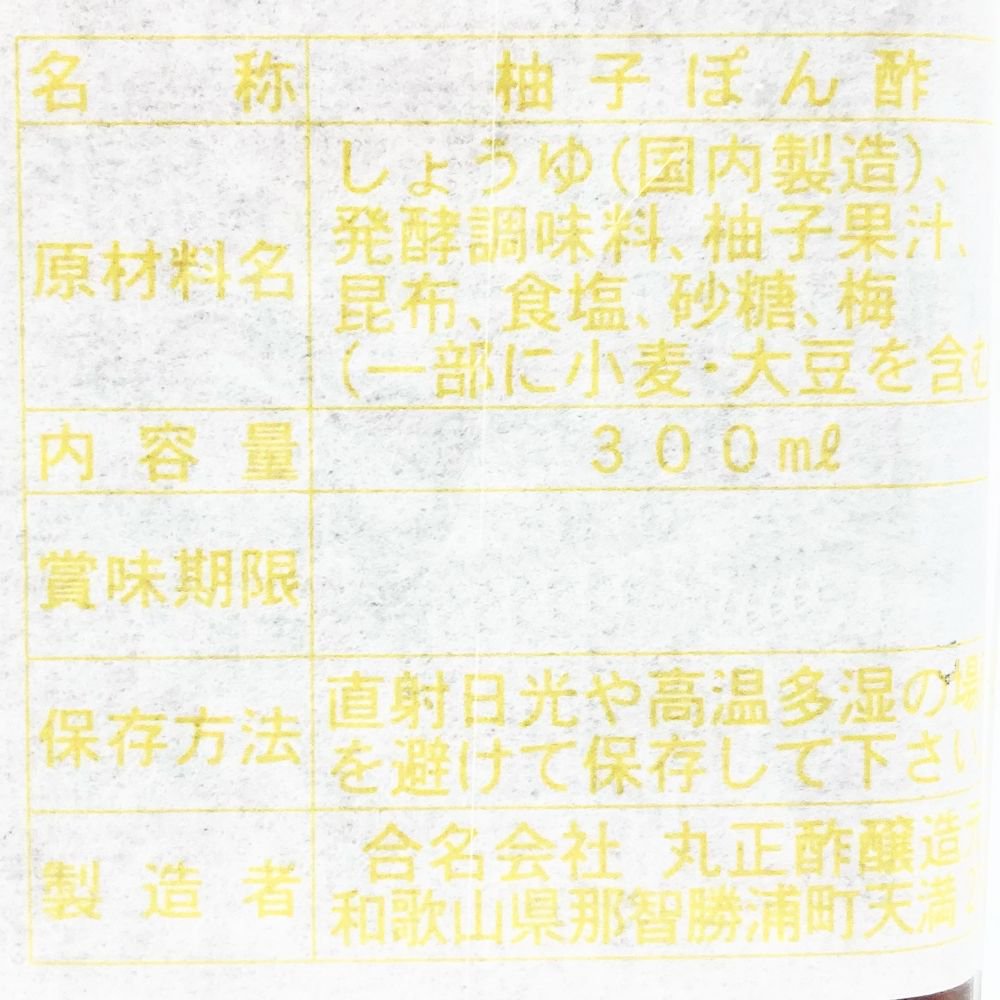 名称 柚子ぽん酢
原材料名 しょうゆ(国内製造)、
発酵調味料、柚子果汁、
昆布、食塩、砂糖、梅
(一部に小麦・大豆を含む
内容量 300ml
賞味期限
保存方法 直射日光や高温多湿の場
を避けて保存して下さい
製造者 合名会社 丸正酢醸造元
和歌山県那智勝浦町天満